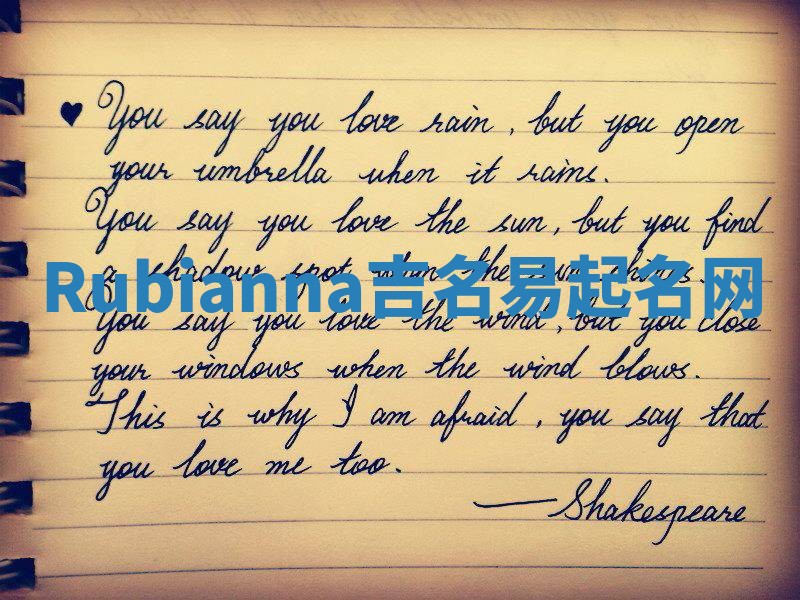 ♥ You say you love rain, but you open
your umbrella when it rains.
You say you love the sun, but you find
a shadow spot when the sun shines.
Rubianna吉名易起名网
You say you love the wind, but you close
your windows when the wind blows.
This is why I am afraid, you say that
you love me too.
—Shakespeare